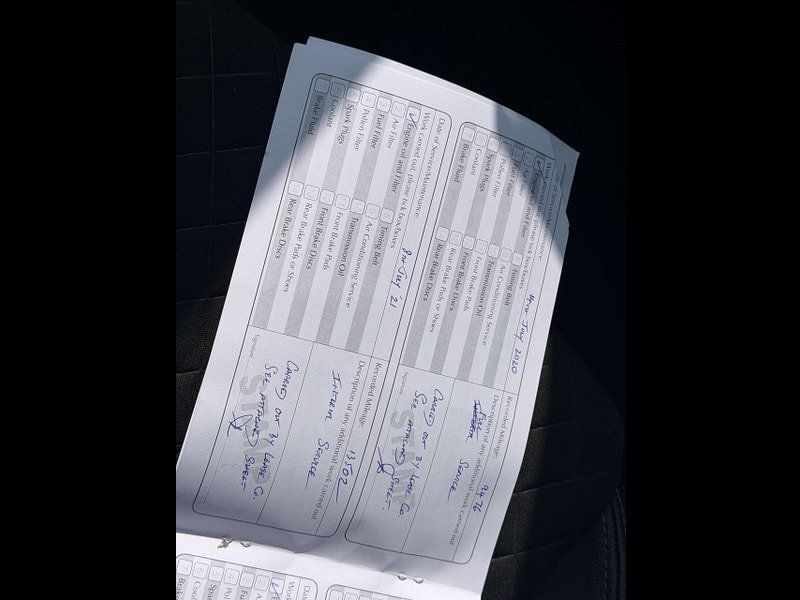 Date of Service/Maintenance:
Work carried out, please tick box/boxes
Engine oil and Filter
Air Filter
Fuel Filter
Pollen Filter
Spark Plugs
Coolant
Brake Fluid
Timing Belt
Air Conditioning Service
Transmission Oil
Front Brake Pads
Front Brake Discs
Rear Brake Pads or Shoes
Rear Brake Discs
July 2020
Recorded Mileage: 9476
Description of any additional work carried out
Full
Service
Carried out by Lease Co.
See attached sheet.
Signature:
STAMP
Date of Service/Maintenance: 8th July 21
Work carried out, please tick box/boxes
Engine oil and Filter
Air Filter
Fuel Filter
Pollen Filter
Spark Plugs
Coolant
Brake Fluid
Timing Belt
Air Conditioning Service
Transmission Oil
Front Brake Pads
Front Brake Discs
Rear Brake Pads or Shoes
Rear Brake Discs
Recorded Mileage: 13502
Description of any additional work carried out
Interim Service
Carried out by Lease Co.
See attached sheet
Signature:
STAMP